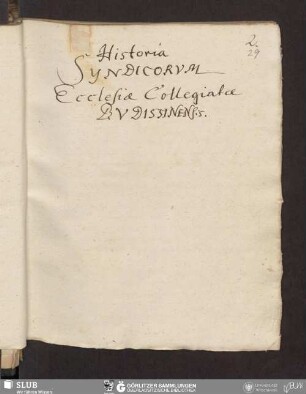 2.
29
Historia
SYNDICORVM
Ecclesiæ Collegiatæ
BVDISSINENS.
SLUB
Wir führen Wissen.
GÖRLITZER SAMMLUNGEN
OBERLAUSITZISCHE BIBLIOTHEK